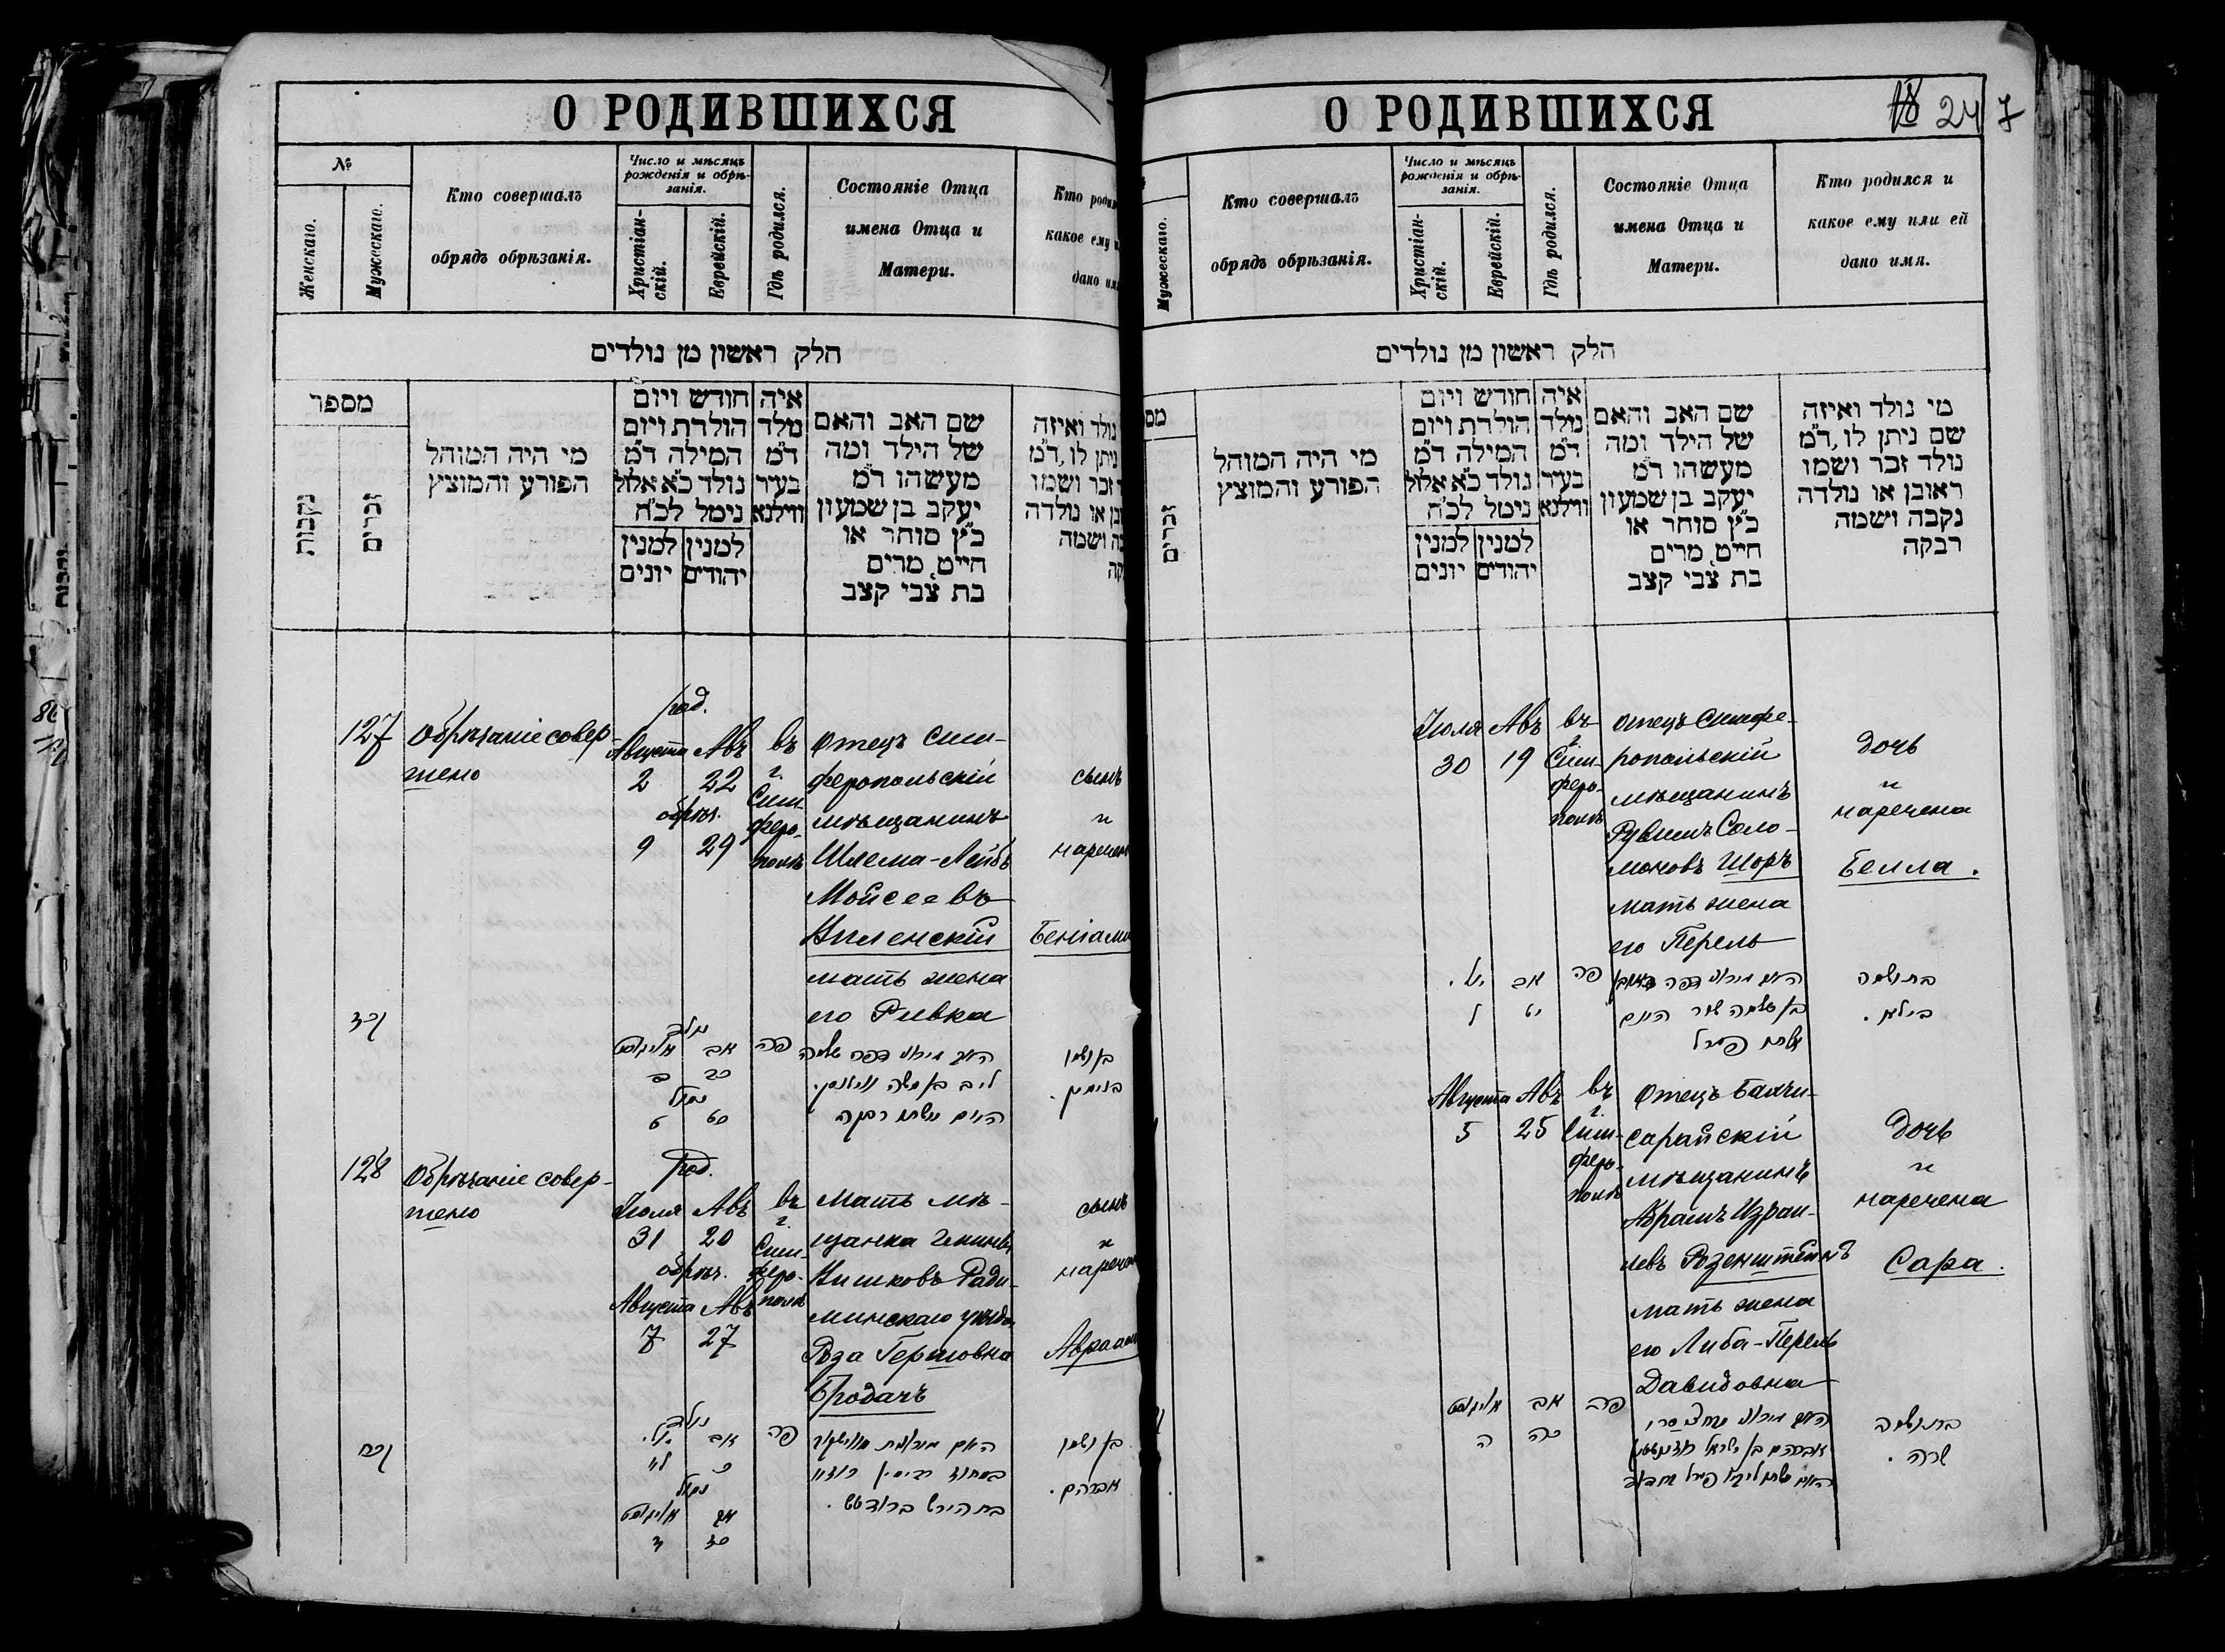 О РОДИВШИХСЯ
№
Женскаго.
Мужескаго.
Кто совершалъ
обрядъ обрѣзанія.
Число и мѣсяцъ
рожденія и обрѣ-
занія.
Христіан-
скій.
Еврейскій.
Гдѣ родился.
Состояніе Отца
имена Отца и
Матери.
Кто
какое ему
дано
חלק ראשון מן נולדים
מספר
נקבות
זכרים
מי היה המוהל
הפורע והמוצץ
חודש ויום
הולדת ויום
המילה ד"מ
נולד כ"א אלול
נימל לכ"ח
למנין
יהודים
למנין
יונים
איה
נולד
ד"מ
בעיר
ווילנא
שם האב והאם
של הילד ומה
מעשהו ד"מ
יעקב בן שמעון
כ"ץ סוחר או
חייט מרים
בת צבי קצב
נולד ואיזה
ניתן לו ד"מ
זכר ושמו
או נולדה
ושמה
127
Обрѣзаніе совер-
шено
род.
Августа Авъ
2 22
обрѣз.
9 29
въ
г.
Сим-
феро-
полѣ
Отецъ Сим-
феропольскій
мѣщанинъ
Шлема-Лейбъ
Мойсеевъ
Виленскій
мать жена
его Ривка
сынъ
и
נולד
אב
כב
נימול
כט
פה
בן ושמו
בנימין.
128
Обрѣзаніе совер-
шено
род.
Іюля Авъ
31 20
обрѣз.
Августа Авъ
7 27
въ
г.
Сим-
феро-
полѣ
Мать мѣ-
щанка
Вишковъ Ради-
минскаго уѣзда
Роза Гершовна
Бродачъ
сынъ
и
נולד
אב
כ
נימול
אב
כז
פה
בן ושמו
אברהם.
О РОДИВШИХСЯ
24 7
Мужескаго.
Кто совершалъ
обрядъ обрѣзанія.
Число и мѣсяцъ
рожденія и обрѣ-
занія.
Христіан-
скій.
Еврейскій.
Гдѣ родился.
Состояніе Отца
имена Отца и
Матери.
Кто родился и
какое ему или ей
дано имя.
חלק ראשון מן נולדים
זכרים
מי היה המוהל
הפורע והמוצץ
חודש ויום
הולדת ויום
המילה ד"מ
נולד כ"א אלול
נימל לכ"ח
למנין
יהודים
למנין
יונים
איה
נולד
ד"מ
בעיר
ווילנא
שם האב והאם
של הילד ומה
מעשהו ד"מ
יעקב בן שמעון
כ"ץ סוחר או
חייט מרים
בת צבי קצב
מי נולד ואיזה
שם ניתן לו ד"מ
נולד זכר ושמו
ראובן או נולדה
נקבה ושמה
רבקה
Іюля Авъ
30 19
въ
г.
Сим-
феро-
полѣ
Отецъ Симфе-
ропольскій
мѣщанинъ
Рувимъ Соло-
моновъ Шоръ
мать жена
его Перель
дочь
и
наречена
Бейла.
אב
יט
ל
פה
בן שלמה שור האם
אשתו פערל
בת ושמה
ביילא.
Августа Авъ
5 25
въ
г.
Сим-
феро-
полѣ
Отецъ Бахчи-
сарайскій
мѣщанинъ
Абрамъ Израи-
левъ Розенштейнъ
мать жена
его Либа-Перель
Давидовна
дочь
и
наречена
Сара.
אב
כה
ה
פה
בת ושמה
שרה.